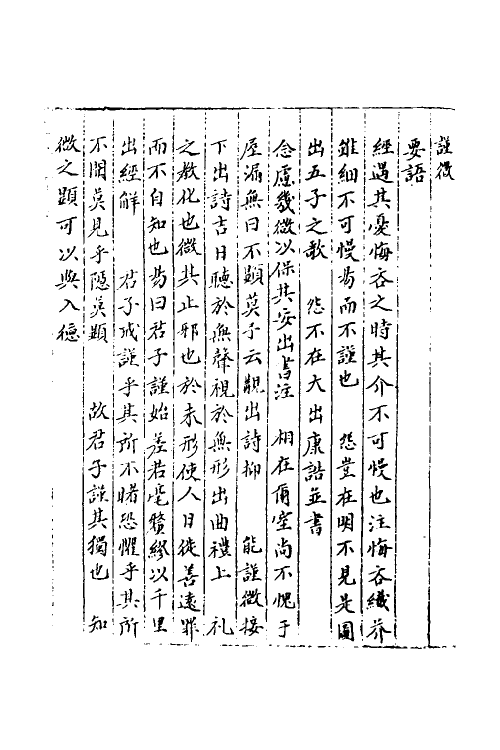 謹微
要語
經過其憂悔吝之時其介不可慢也注悔吝纖芥
雖細不可慢易而不謹也　怨豈在明不見是圖
出五子之歌　怨不在大出康誥並書
念慮幾微以保其安出書注　相在爾室尚不愧于
屋漏無曰不顯莫予云覯出詩抑　能謹微接
下出詩吉日聽於無聲視於無形出曲禮上　礼
之教化也微其止邪也於未形使人日徙善遠罪
而不自知也易曰君子謹始差若毫釐繆以千里
出經解　君子戒謹乎其所不睹恐懼乎其所
不聞莫見乎隱莫顯　故君子謹其獨也　知
微之顯可以與入德